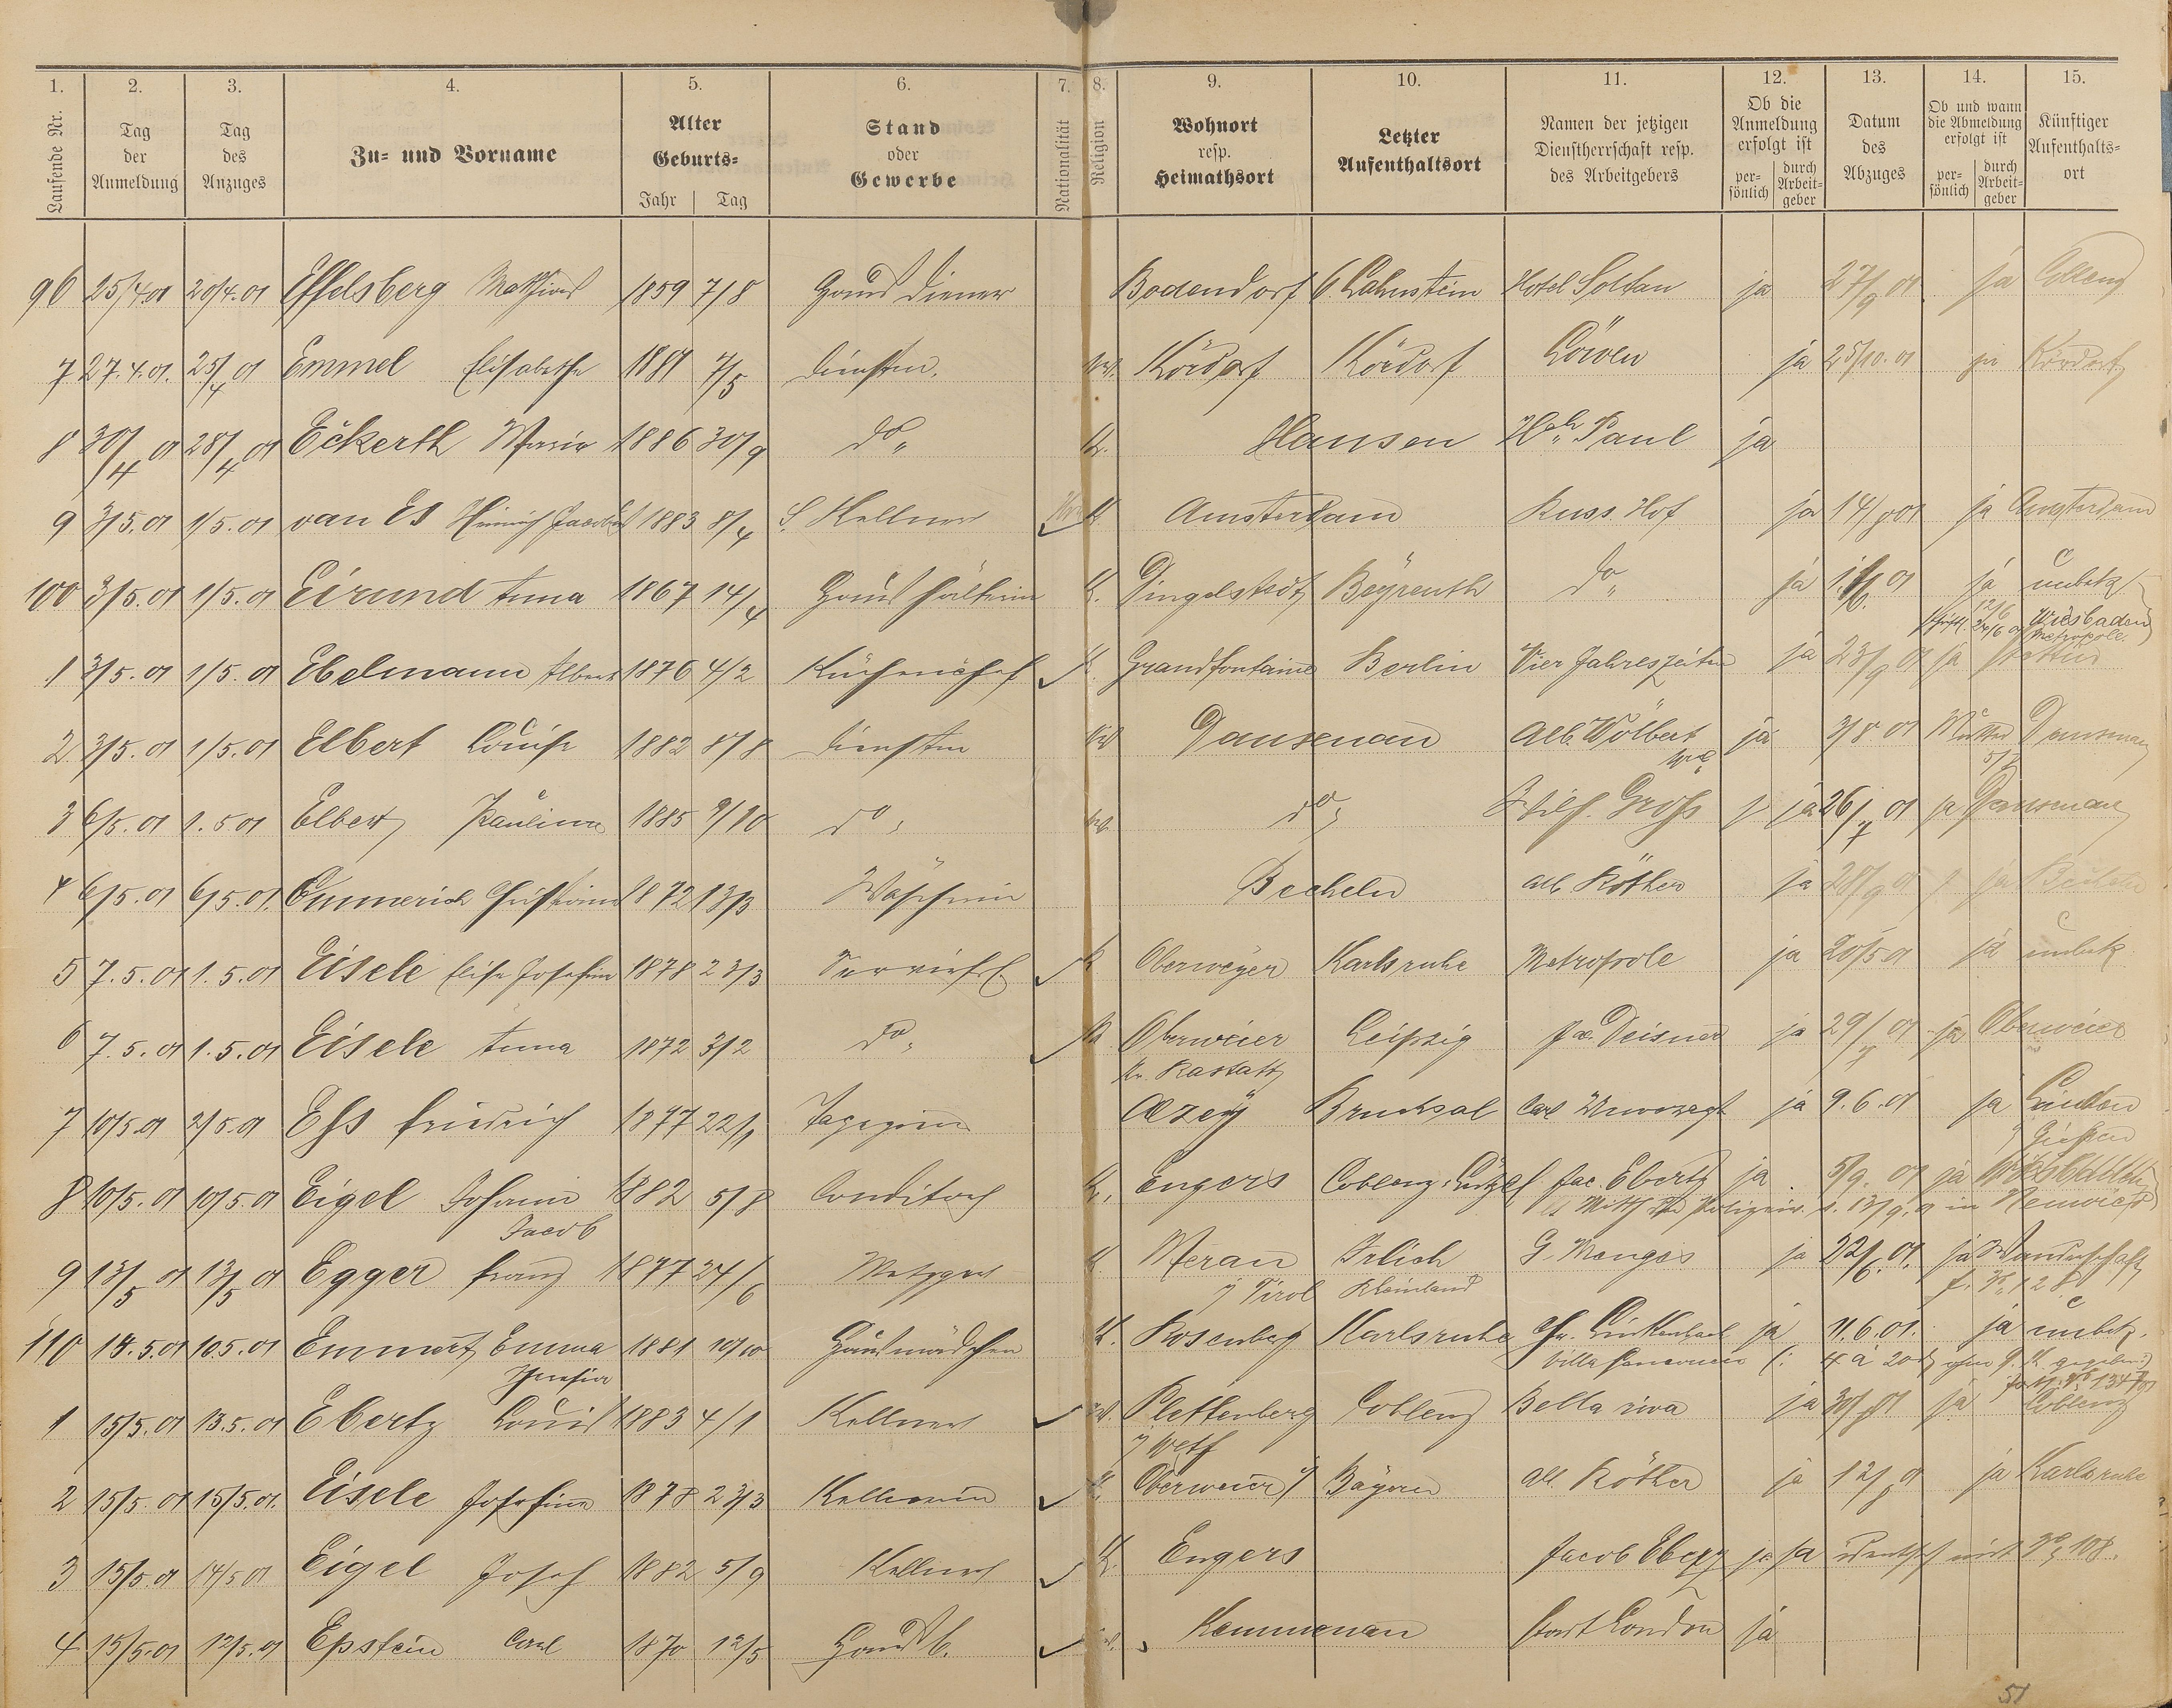 1. 2. 3. 4. 5. 6. 7. 8. 9. 10. 11. 12. 13. 14. 15.
Laufende Nr. Tag der Anmeldung Tag des Anzuges Zu- und Vorname Alter Geburts- Jahr Tag Stand oder Gewerbe Nationalität Religion Wohnort resp. Heimathsort Letzter Aufenthaltsort Namen der jetzigen Dienstherrschaft resp. des Arbeitgebers Ob die Anmeldung erfolgt ist persönlich durch Arbeitgeber Datum des Abzuges Ob und wann die Abmeldung erfolgt ist persönlich durch Arbeitgeber Künftiger Aufenthaltsort
96 25/4.01 20/4.01 Effelsberg Mathias 1859 7/8 Haus Diener Bodendorf Lahnstein Hotel Soltau ja 27/9 01 ja
7 27.4.01. 25/4 01 Emmel Elisabethe 1881 7/5 Dienstm. Kördorf Kördorf Löwen ja 25/10.01 ja Kördorf
8 30/4 01 28/4 01 Eckerth Maria 1886 30/9 do Hausen Paul ja
9 3/5.01 1/5.01 van Es 1883 8/4 S. Kellner K Amsterdam Russ. Hof ja 14/9 01 ja Amsterdam
100 3/5.01 1/5.01 Eirund Anna 1867 14/4 Haushälterin K. Dingelstedt Bayreuth do ja ja unbek
12/6 Wiesbaden Metropole.
1 3/5.01 1/5.01 Ebelmann Albert 1876 4/2 Küchenchef Grandfontaine Berlin Vier Jahreszeiten ja 23/9 01 ja
2 3/5.01 1/5.01 Elbert Louise 1882 8/8 Dienstm Dausenau Alb. Wölbert ja 3/8 01 Mutter Dausenau
3 6/5.01 1.5 01 Elbert Pauline 1885 9/10 do do Gross ja 26/7 01 ja Dausenau
4 6/5.01 6/5.01. Emmerich Christiane 1872 13/3 Wäscherin Becheln Alb. Röther ja 28/9 01 ja Becheln
5 7.5.01 1.5.01 Eisele Elise Josefine 1878 23/3 K Oberweyer Karlsruhe Metropole ja 20/5 01 ja unbek.
6 7.5.01 1.5.01 Eisele Anna 1872 3/2 do K Oberweier Leipzig Jac. Deisner ja 29/7 01 ja Oberweier
Kr. Rastatt
7 10/5.01 2/5.01 Ess Friedrich 1877 22/1 Tapezirer Alzey Bruchsal Carl Unverzagt ja 9.6.01 ja Linden
Giessen
8 10/5.01 10/5.01 Eigel Johann 1882 5/8 Conditor K. Engers Coblenz Lützel Jac. Ebertz ja 5/9. 01 ja Wiesbaden
Jacob 13/9. in Neuwied
9 13/5 01 13/5 01 Egger Franz 1877 24/6 Metzger K. Meran Irlich G. Menges ja 22/6.01. ja Wanderschaft
Tirol Rheinland
110 14.5.01 10.5.01 Emmert Emma 1881 10/10 Hausmädchen K. Rosenberg Karlsruhe Chr. Linkenbach ja 11.6.01. ja unbek.
Theresia Villa
1 15/5.01 13.5.01 Ebertz Louis 1883 4/1 Kellner Plettenberg Coblenz Bella riva ja ja Coblenz
2 15/5.01 15/5.01. Eisele Josefine 1878 23/3 Kellnerin K. Oberweier Bayern Alb. Röther ja ja Karlsruhe
3 15/5.01 14/5 01 Eigel Josef 1882 5/9 Kellner K. Engers Jacob Ebertz ja ja identisch mit No 108.
4 15/5.01 12/5.01 Epstein Carl 1870 12/5 Kemmenau Stadt London ja
51